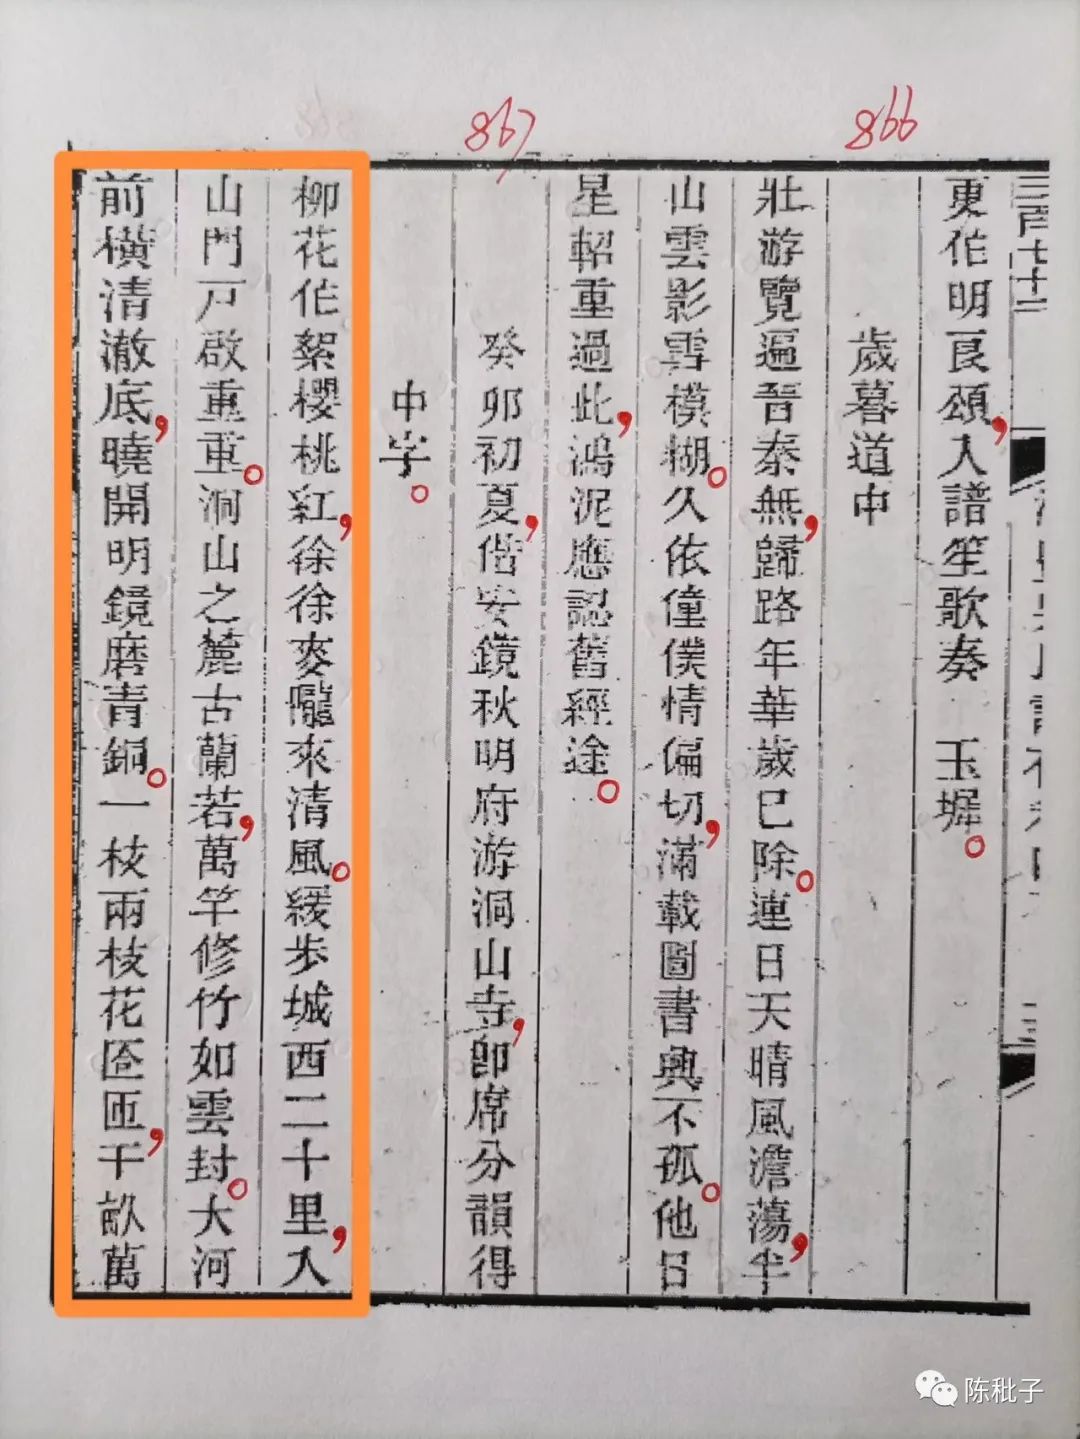 866
867
更作明良頌，入譜笙歌奏　玉墀。
歲暮道中
壯游覽遍晉秦無，歸路年華歲已除。連日天晴風澹蕩，半
山雲影雪模糊。久依僮僕情偏切，滿載圖書興不孤。他日
星軺重過此，鴻泥應認舊經途。
癸卯初夏，偕安鏡秋明府游洞山寺，卽席分韻得
中字。
柳花作絮櫻桃紅，徐徐麥隴來清風。緩步城西二十里，入
山門戸啟重重。洞山之麓古蘭若，萬竿修竹如雲封。大河
前橫清澈底，曉開明鏡磨青銅。一枝兩枝花匼匝，千畝萬
陈秕子